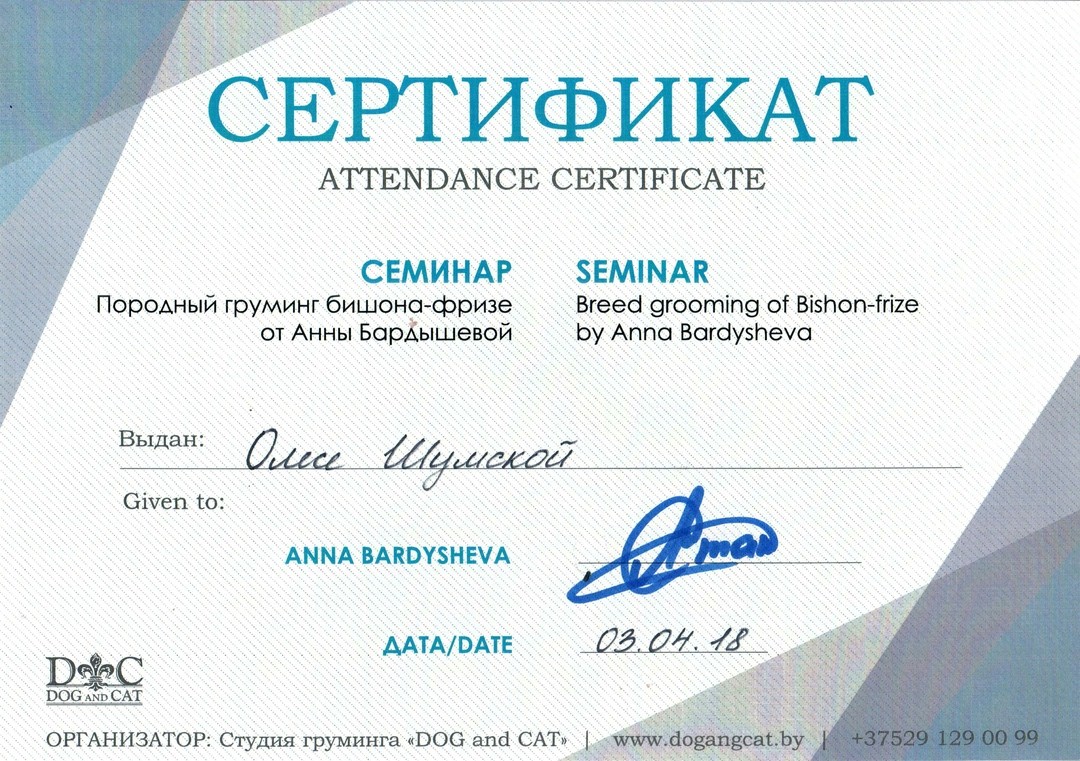 СЕРТИФИКАТ
ATTENDANCE CERTIFICATE
СЕМИНАР
Породный груминг бишона-фризе
от Анны Бардышевой
SEMINAR
Breed grooming of Bishon-frize
by Anna Bardysheva
Выдан: Олесе Шумской
Given to:
ANNA BARDYSHEVA
ДАТА/DATE 03.04.18
D C
DOG AND CAT
ОРГАНИЗАТОР: Студия груминга «DOG and CAT» | www.dogangcat.by | +37529 129 00 99